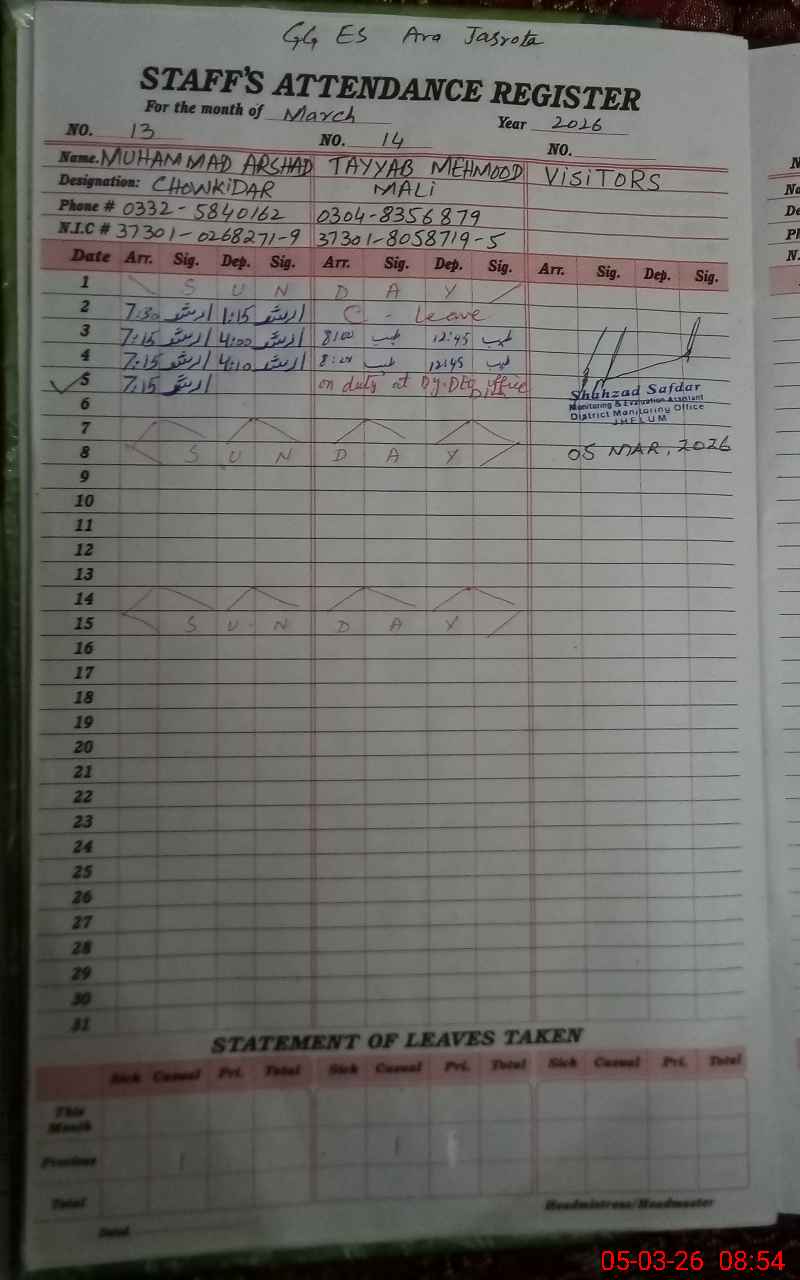 GG ES Ara Jasrota
STAFF'S ATTENDANCE REGISTER
For the month of March Year 2026
NO. 13 NO. 14 NO.
Name. MUHAMMAD ARSHAD TAYYAB MEHMOOD VISITORS
Designation: CHOWKIDAR MALI
Phone # 0332-5840162 0304-8356879
N.I.C # 37301-0268271-9 37301-8058719-5
Date Arr. Sig. Dep. Sig. Arr. Sig. Dep. Sig. Arr. Sig. Dep. Sig.
1 S U N D A Y
2 7:30 ارشد 1:15 ارشد C - Leave
3 7:15 ارشد 4:00 ارشد 8:00 طیب 12:45 طیب
4 7:15 ارشد 4:10 ارشد 8:00 طیب 12:45 طیب
5 7:15 ارشد on duty at Dy. DEO office
Shahzad Safdar
Monitoring & Evaluation Assistant
District Monitoring Office
JHELUM
6
7
8 S U N D A Y 05 MAR, 2026
9
10
11
12
13
14
15 S U N D A Y
16
17
18
19
20
21
22
23
24
25
26
27
28
29
30
31
STATEMENT OF LEAVES TAKEN
Sick Casual Pri. Total Sick Casual Pri. Total Sick Casual Pri. Total
This Month
Previous 1 1
Total
Headmistress/Headmaster
05-03-26 08:54